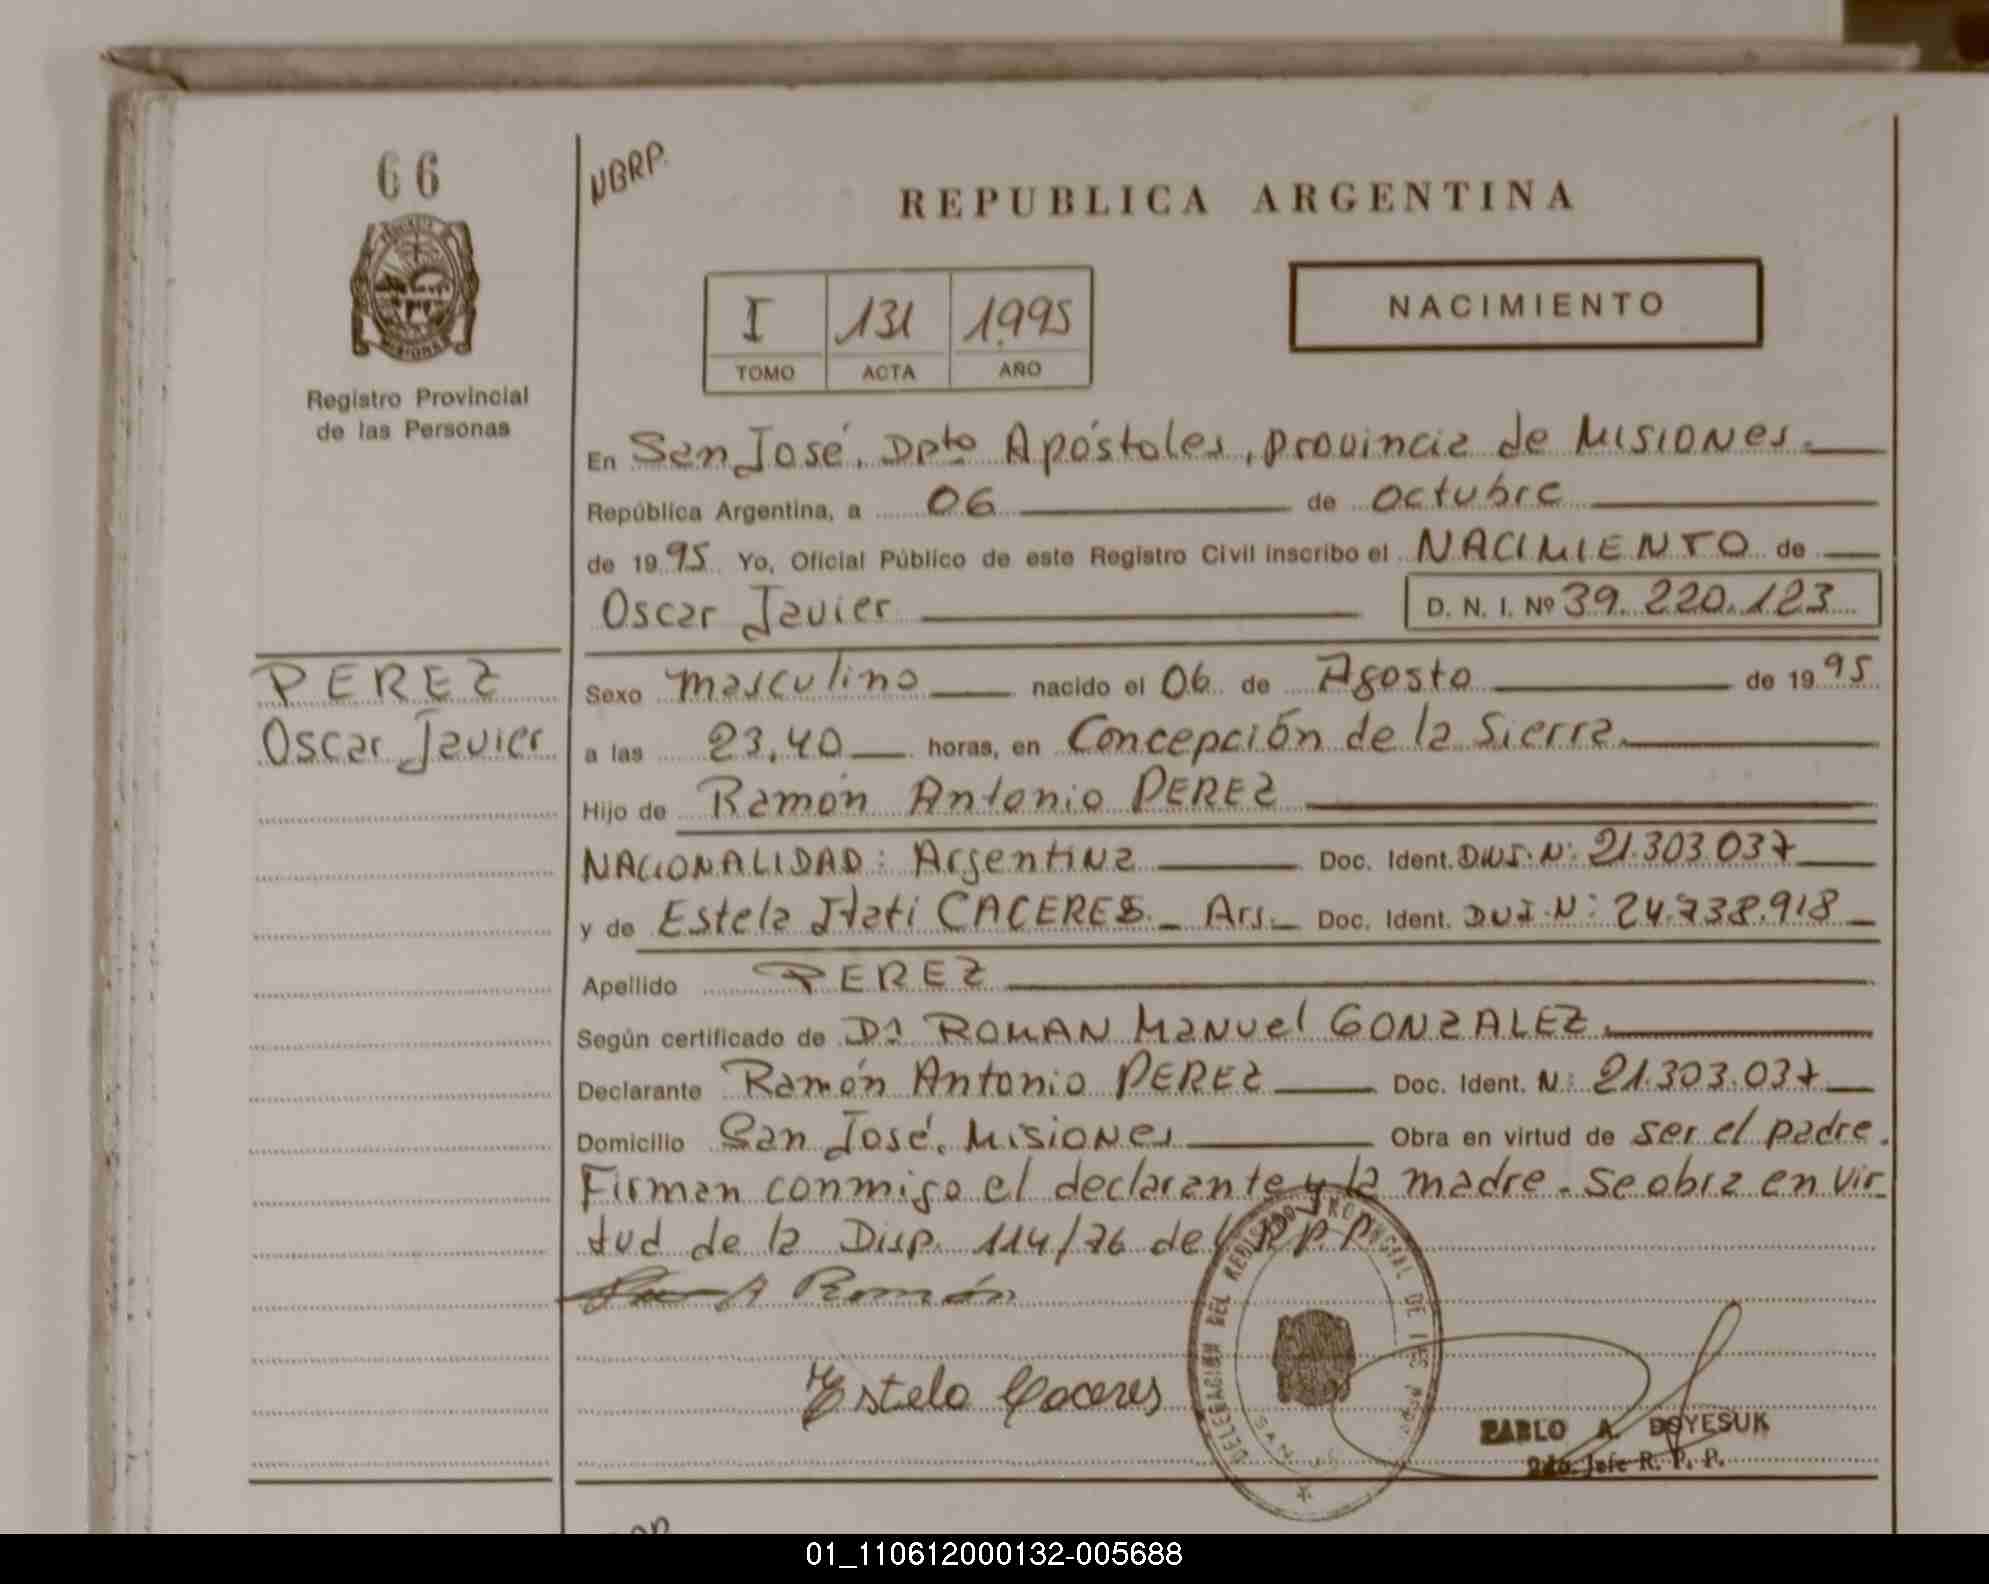 66
NBRP.
REPUBLICA ARGENTINA
I 131 1.995
TOMO ACTA AÑO
NACIMIENTO
MISIONES
Registro Provincial
de las Personas
En San José. Dpto Apóstoles, provincia de MISIONES.
República Argentina, a 06 de octubre
de 1995 Yo, Oficial Público de este Registro Civil inscribo el NACIMIENTO de
Oscar Javier D. N. I. Nº 39.220.123
PEREZ
Oscar Javier
Sexo masculino nacido el 06 de Agosto de 1995
a las 23,40 horas, en Concepción de la Sierra.
Hijo de Ramón Antonio PEREZ
NACIONALIDAD: Argentina Doc. Ident. DNI. N: 21.303.037
y de Estela Itati CACERES. Arg. Doc. Ident. DNI. N: 24.738.918
Apellido PEREZ
Según certificado de Dr ROMAN Manuel GONZALEZ.
Declarante Ramón Antonio PEREZ Doc. Ident. N: 21.303.037
Domicilio San José. Misiones Obra en virtud de ser el padre.
Firman conmigo el declarante y la madre. Se obra en vir
tud de la Disp. 114/76 del R.P.P.
Román
Estela Caceres
DELEGACION DEL REGISTRO PROVINCIAL DE
SAN
PABLO A. BOYESUK
2do. Jefe R. P. P.
01_110612000132-005688